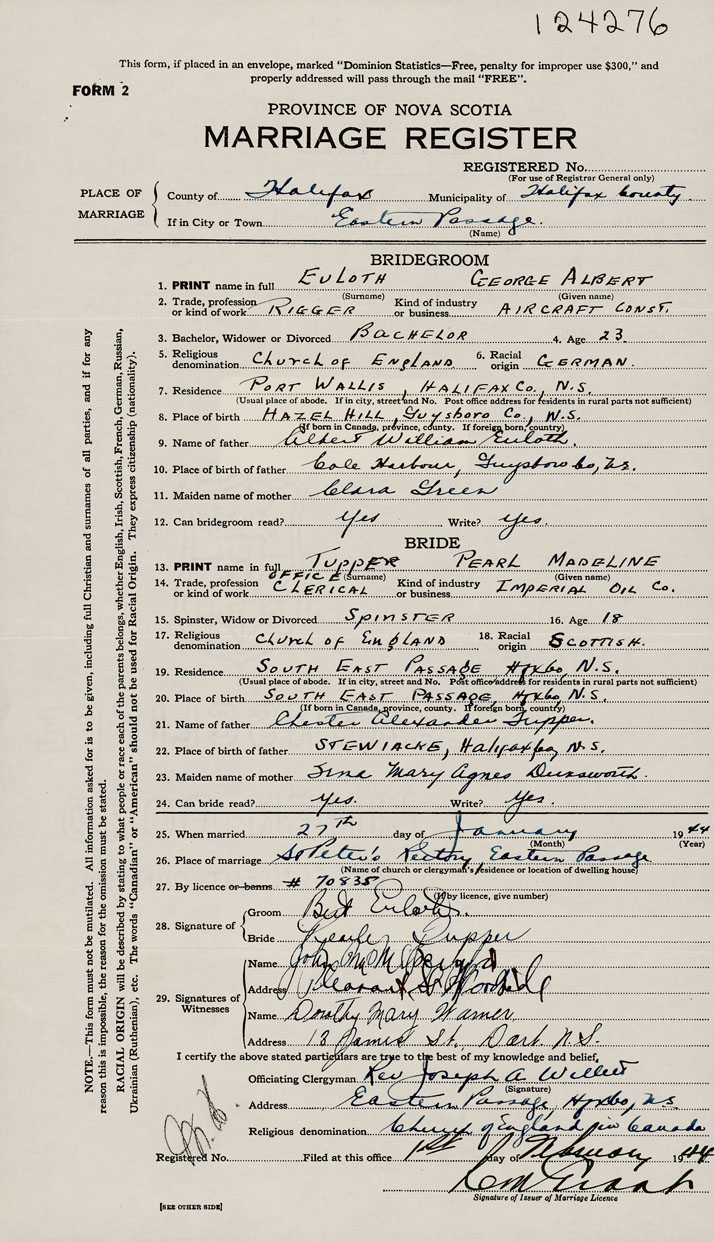 124276
This form, if placed in an envelope, marked "Dominion Statistics—Free, penalty for improper use $300," and
properly addressed will pass through the mail "FREE".
FORM 2
PROVINCE OF NOVA SCOTIA
MARRIAGE REGISTER
REGISTERED No.
(For use of Registrar General only)
PLACE OF MARRIAGE
County of Halifax Municipality of Halifax County
If in City or Town Eastern Passage.
(Name)
BRIDEGROOM
1. PRINT name in full EULOTH GEORGE ALBERT
(Surname) (Given name)
2. Trade, profession or kind of work RIGGER Kind of industry or business AIRCRAFT CONST.
3. Bachelor, Widower or Divorced BACHELOR 4. Age 23
5. Religious denomination CHURCH OF ENGLAND 6. Racial origin GERMAN.
7. Residence PORT WALLIS, HALIFAX Co., N.S.
(Usual place of abode. If in city, street and No. Post office address for residents in rural parts not sufficient)
8. Place of birth HAZEL HILL, Guysboro Co., N.S.
(If born in Canada, province, county. If foreign born, country)
9. Name of father Albert William Euloth.
10. Place of birth of father Cole Harbour, Guysboro Co, N.S.
11. Maiden name of mother Clara Green
12. Can bridegroom read? Yes Write? Yes.
BRIDE
13. PRINT name in full TUPPER PEARL MADELINE
(Surname) (Given name)
14. Trade, profession or kind of work OFFICE CLERICAL Kind of industry or business IMPERIAL OIL Co.
15. Spinster, Widow or Divorced SPINSTER 16. Age 18
17. Religious denomination CHURCH OF ENGLAND 18. Racial origin SCOTTISH.
19. Residence SOUTH EAST PASSAGE Hfx Co, N.S.
(Usual place of abode. If in city, street and No. Post office address for residents in rural parts not sufficient)
20. Place of birth SOUTH EAST PASSAGE, Hfx Co, N.S.
(If born in Canada, province, county. If foreign born, country)
21. Name of father Chester Alexander Tupper.
22. Place of birth of father STEWIACKE, Halifax Co, N.S.
23. Maiden name of mother Mary Agnes Dunsworth.
24. Can bride read? Yes. Write? Yes.
25. When married 27th day of January 1944
(Month) (Year)
26. Place of marriage St Peter's Rectory, Eastern Passage
(Name of church or clergyman's residence or location of dwelling house)
27. By licence or banns # 70835
(If by licence, give number)
28. Signature of
Groom Bert Euloth.
Bride Pearle Tupper
29. Signatures of Witnesses
Name John
Address Pleasant St Woodside
Name Dorothy Mary Warner
Address 18 James St. Dart. N.S.
I certify the above stated particulars are true to the best of my knowledge and belief,
Officiating Clergyman Rev Joseph A Willett
(Signature)
Address Eastern Passage, Hfx Co, N.S.
Religious denomination Church of England in Canada
Registered No. Filed at this office 1st day of 1944
Signature of Issuer of Marriage Licence
[SEE OTHER SIDE]
NOTE.—This form must not be mutilated. All information asked for is to be given, including full Christian and surnames of all parties, and if for any
reason this is impossible, the reason for the omission must be stated.
RACIAL ORIGIN will be described by stating to what people or race each of the parents belongs, whether English, Irish, Scottish, French, German, Russian,
Ukrainian (Ruthenian), etc. The words "Canadian" or "American" should not be used for Racial Origin. They express citizenship (nationality).